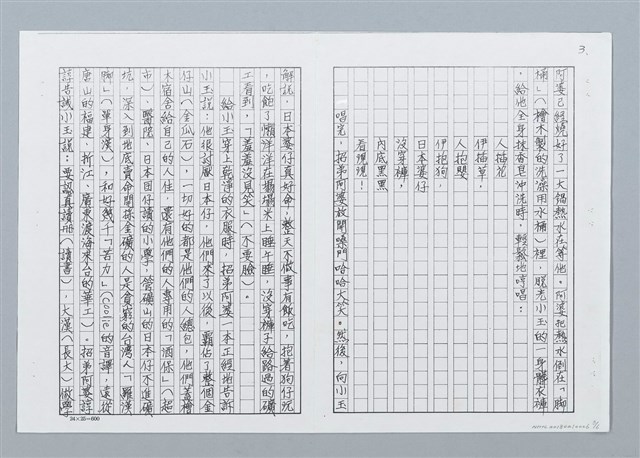 3.
阿婆已經燒好了一大鍋熱水在等他。阿婆把熱水倒在「腳
桶」(檜木製的洗澡用水桶)裡,脫光小玉的一身髒衣褲
,給他全身抹香皂沖洗時,輕鬆地哼唱:
人插花
伊插草,
人抱嬰
伊抱狗,
日本婆仔
沒穿褲,
內底黑黑
看現現!
唱完,招弟阿婆放開嗓門哈哈大笑。然後,向小玉
解說,日本婆仔真好命,整天不做事有飯吃,抱著狗仔玩
,吃飽了懶洋洋在榻榻米上睡午睡,沒穿褲子給路過的礦
工看到,「羞羞沒見笑」(不要臉)。
給小玉穿上乾淨的衣服時,招弟阿婆一本正經地告訴
小玉說:他很討厭日本仔,他們來了以後,霸佔了整個金
仔山(金瓜石),一切好的都是他們的人總包,他們蓋檜
木宿舍給自己的人住,還有他們的人專用的「酒保」(超
市)、醫院、日本囝仔讀的小學,管礦山的日本仔不進礦
坑,深入到地底賣命開採金礦的人是貧窮的台灣人「羅漢
腳」(單身漢),和好幾千「苦力」(Coolie的音譯,遠從
唐山的福建、折江、廣東渡海來台的華工)。招弟阿婆諄
諄告誡小玉說:要認真讀册(讀書),大漢(長大)做學
24×25=600